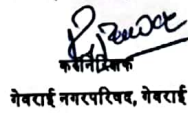 करनिरिक्षक
गेवराई नगरपरिषद, गेवराई